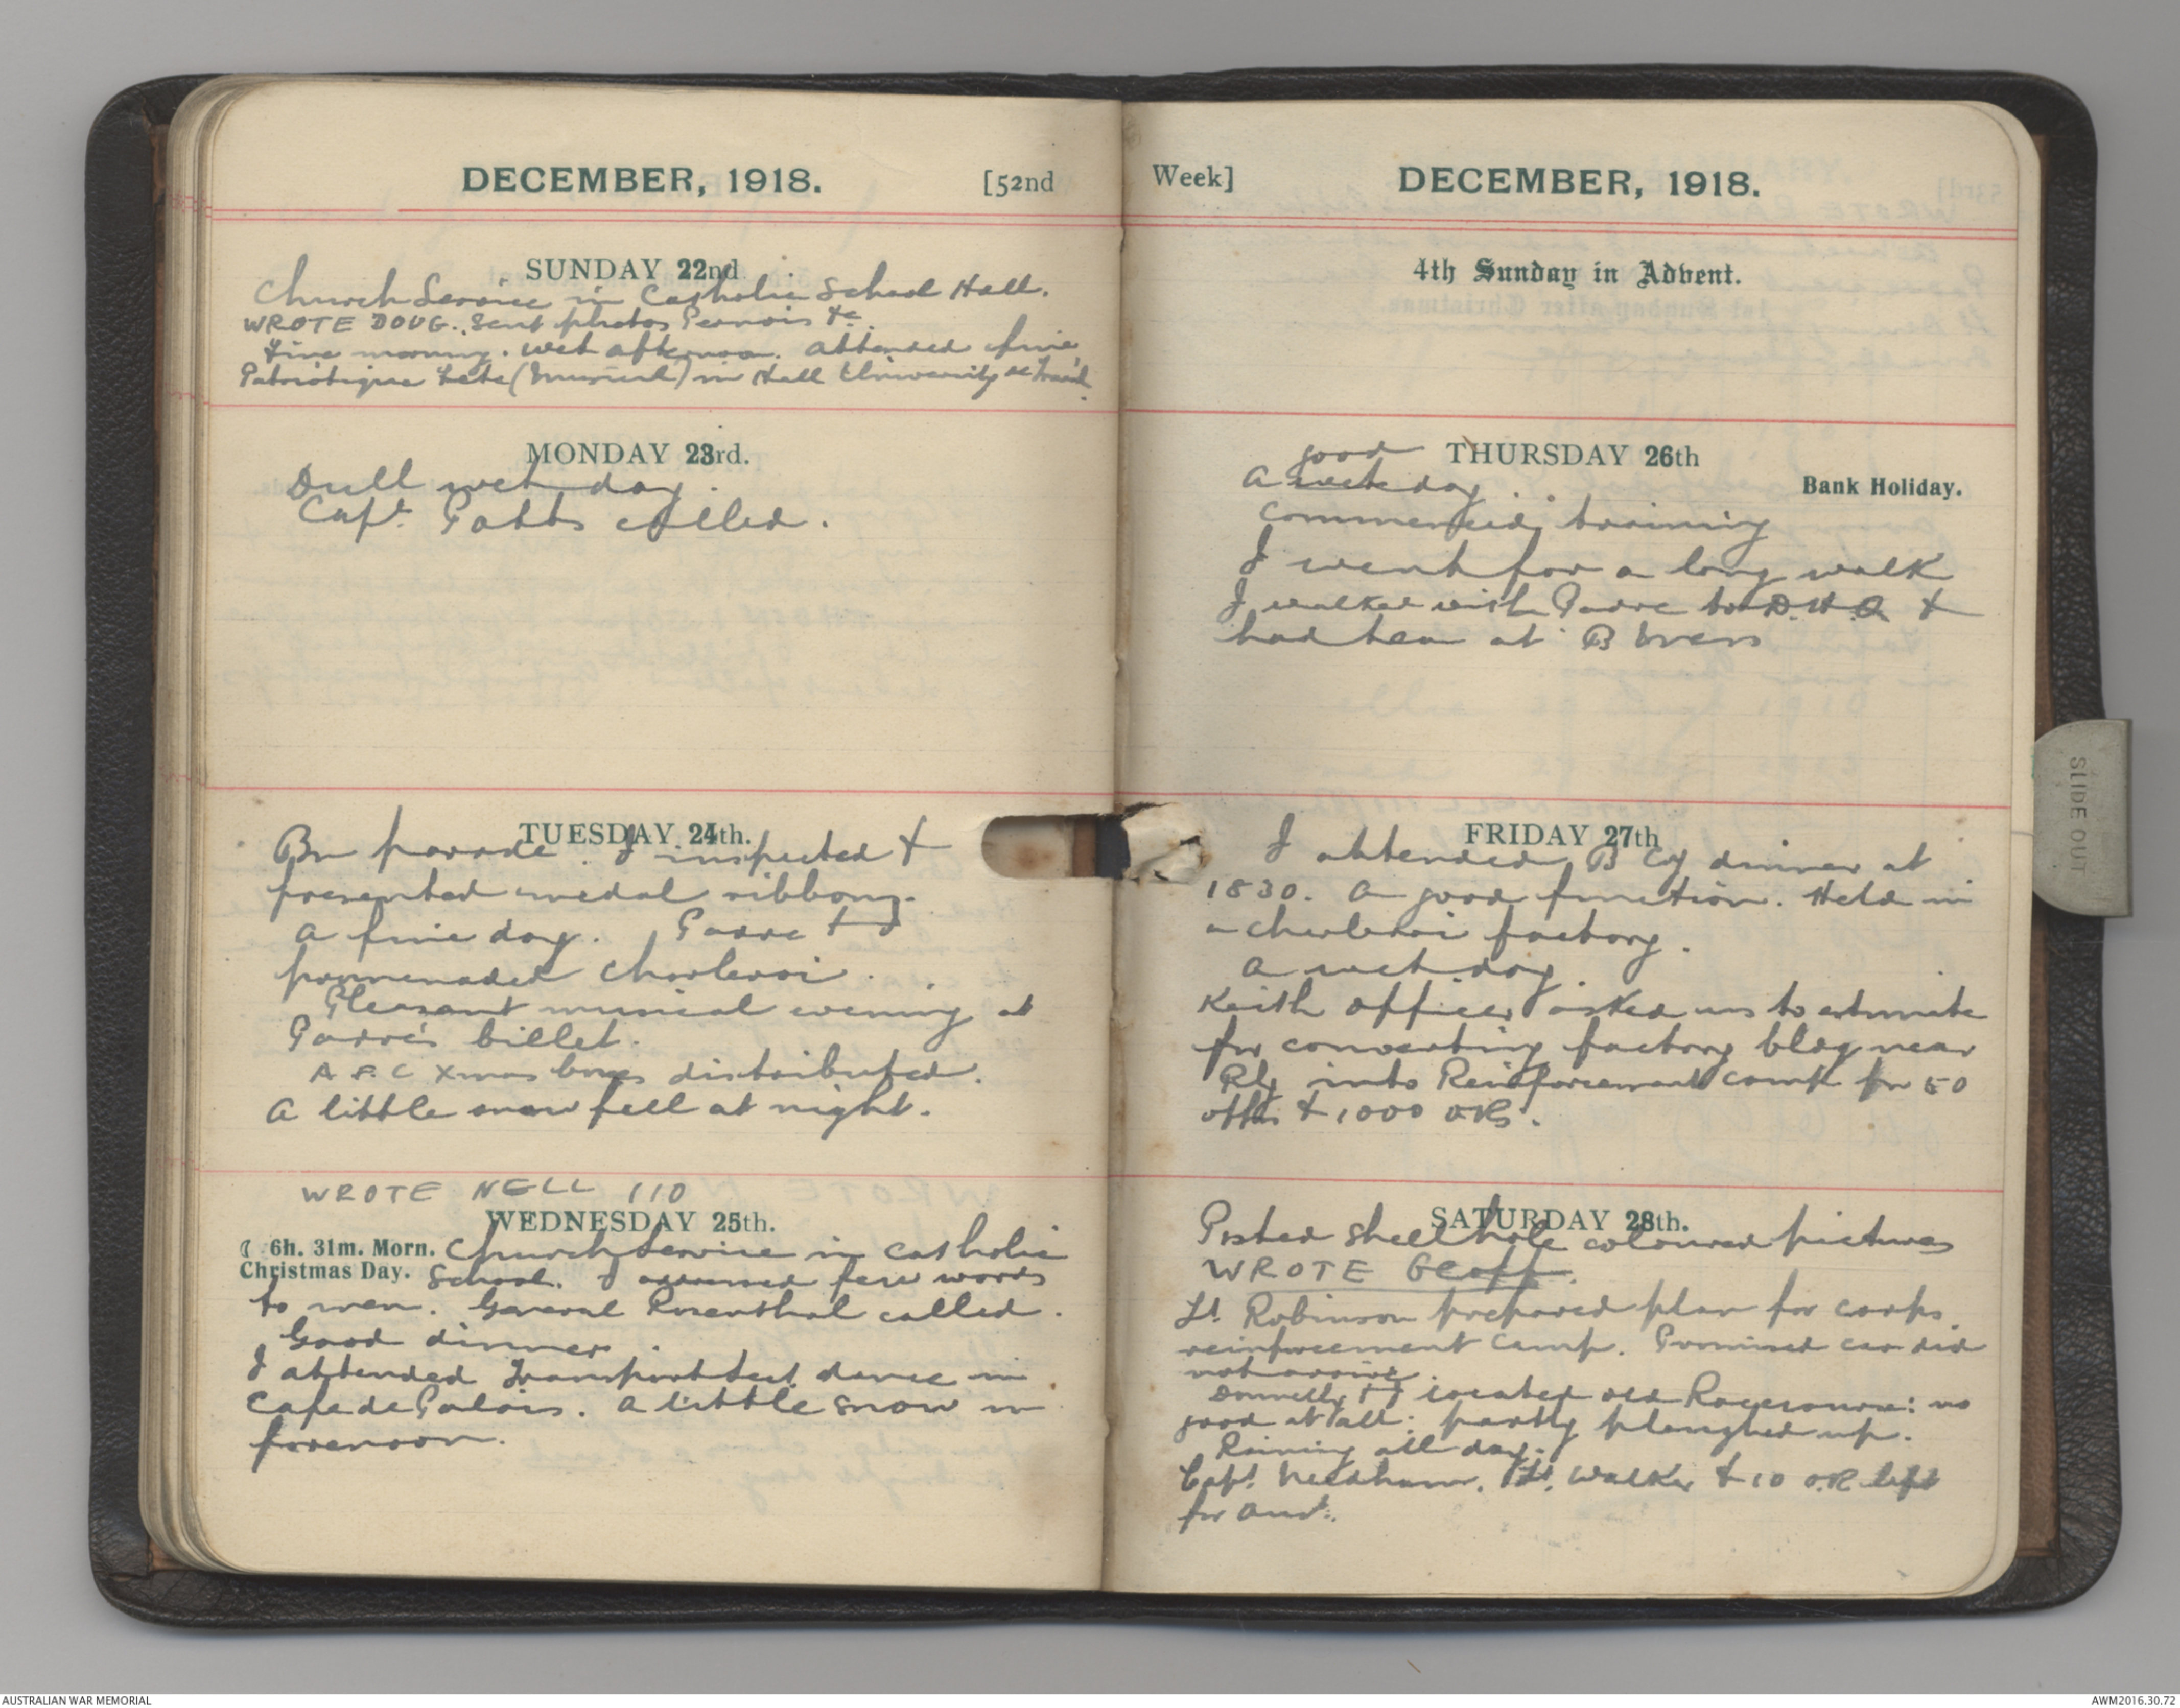 DECEMBER, 1918. [52nd
SUNDAY 22nd
Church Service in Catholic School Hall.
WROTE DOUG. Sent photos Pernois &c.
Fine morning. wet afternoon. attended fine
Patriotique Fete (Musical) in Hall University de Travail.
MONDAY 23rd.
Dull wet day.
Capt. Potts called.
TUESDAY 24th.
Bn parade. I inspected &
presented medal ribbons.
A fine day. Padre & I
promenaded Charleroi.
Pleasant musical evening at
Padre's billet.
A F. C Xmas boxes distributed.
A little snow fell at night.
WROTE NELL 110
WEDNESDAY 25th.
☾ 6h. 31m. Morn.
Christmas Day.
Church Service in Catholic
School. I addressed few words
to men. General Rosenthal called.
Good dinner.
I attended Transport Sect. dance in
Cafe de Palais. A little snow in
forenoon.
Week] DECEMBER, 1918.
4th Sunday in Advent.
THURSDAY 26th
Bank Holiday.
good
A wet day.
Commenced training
I went for a long walk
I walked with Padre to D.H.Q. &
had tea at B Mess
FRIDAY 27th
I attended B Coy dinner at
1830. A good function. Held in
a Charleroi factory.
A wet day.
Keith Officer asked us to estimate
for converting factory bldg near
Rly into Reinforcement camp for 50
offrs & 1000 ORs.
SATURDAY 28th.
Posted shellhole coloured pictures
WROTE Geoff.
Lt. Robinson prepared plan for corps
reinforcement camp. Promised car did
not arrive.
Donnelly & I located old Racecourse: no
good at all: partly ploughed up.
Raining all day.
Capt. Needham, Lt. Walker & 10 O.R left
for Aust.
SLIDE OUT
AUSTRALIAN WAR MEMORIAL
AWM2016.30.72